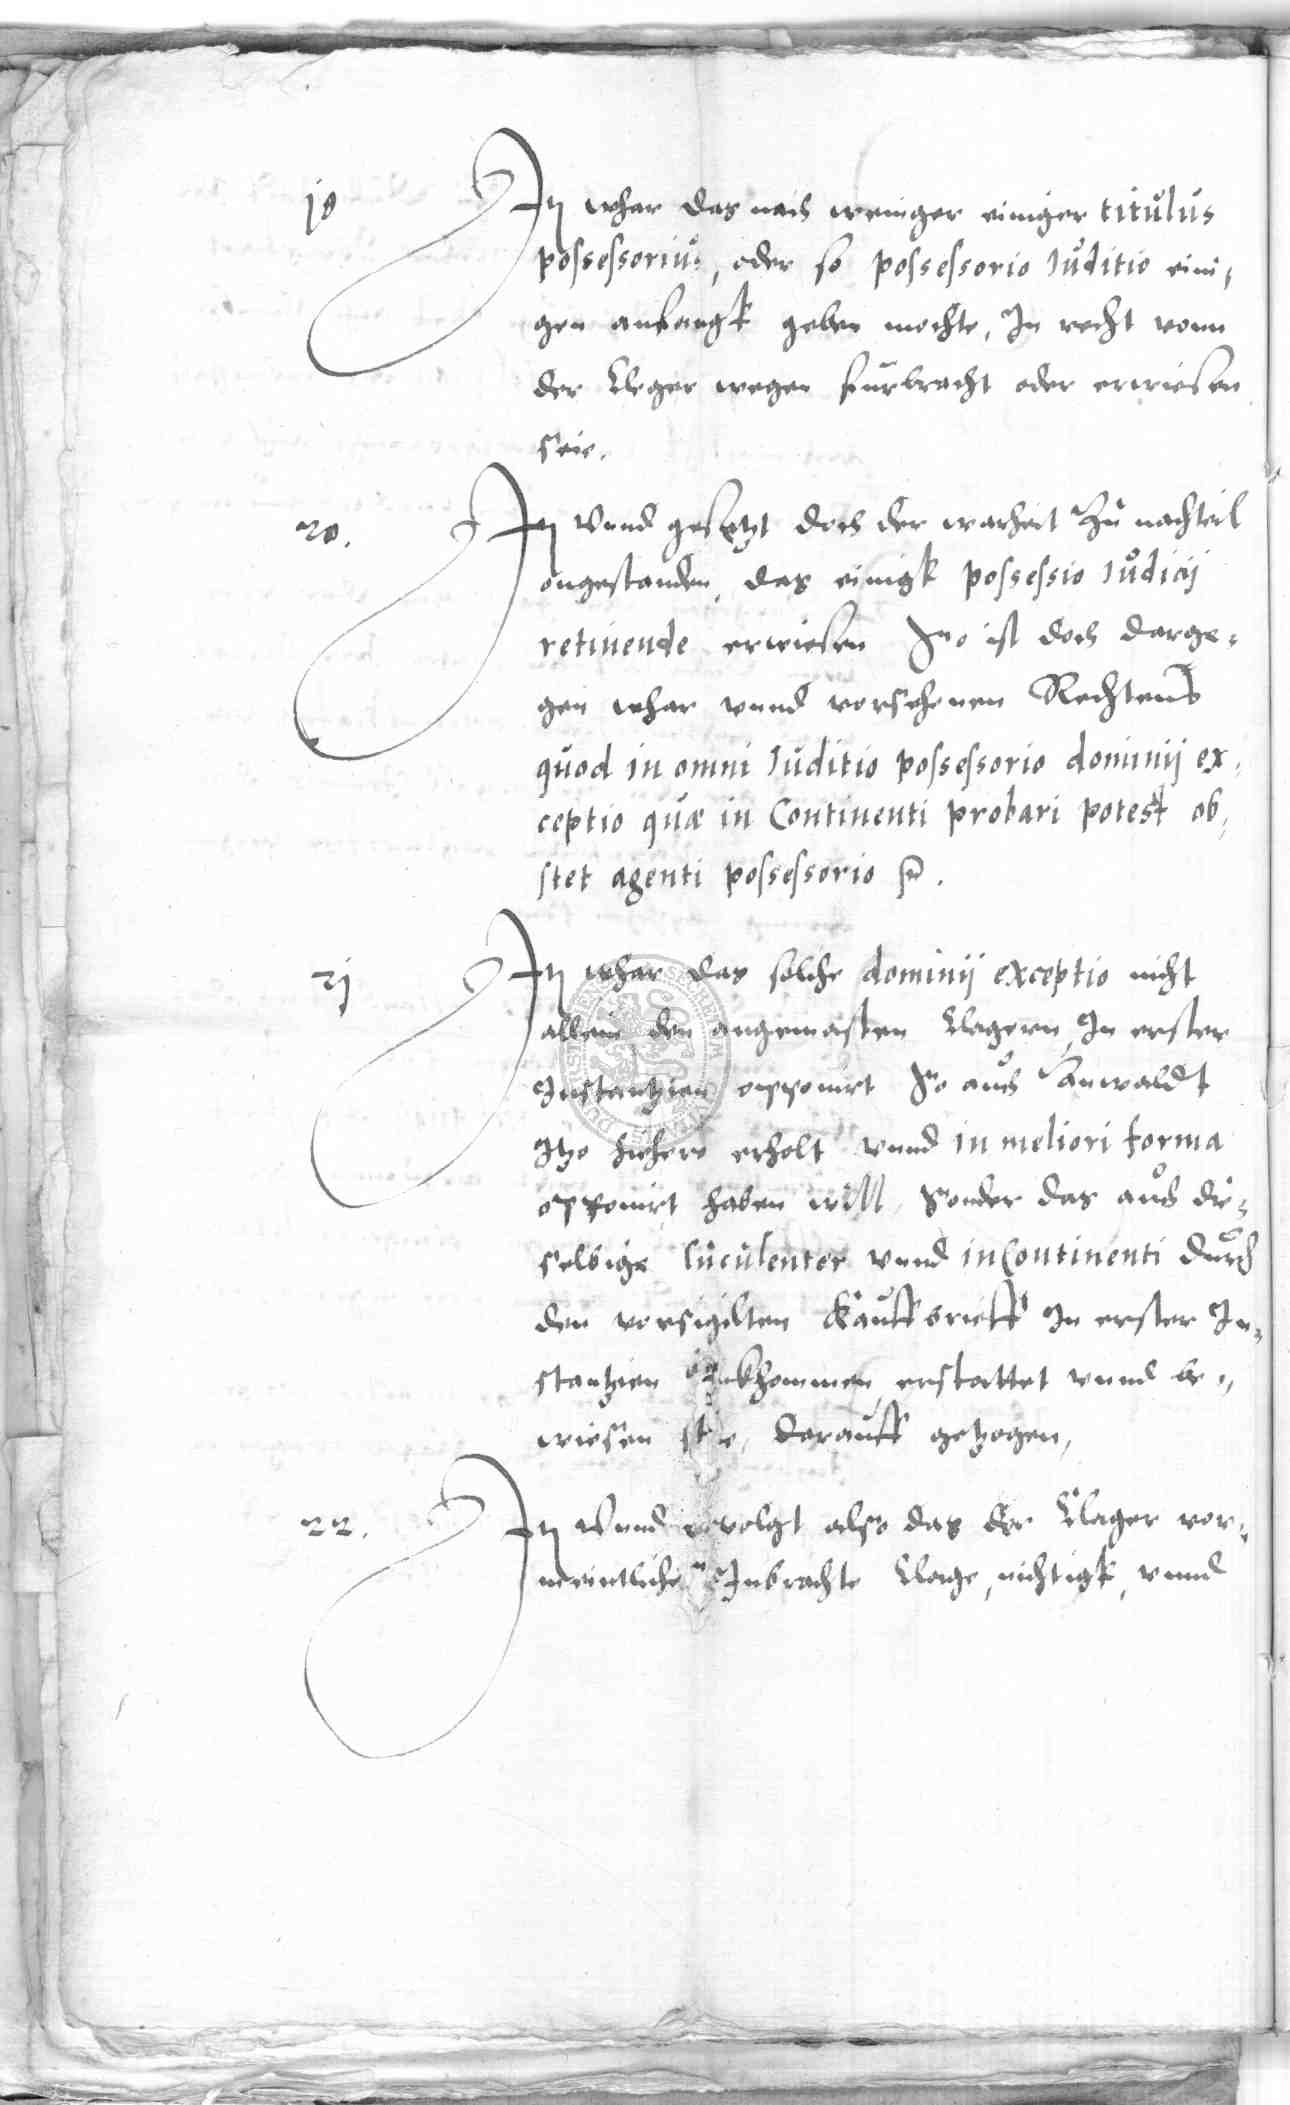 19 Jn whar das nach weniger einiger titulus
possessorius, oder so possessorio Iuditio eini,
gen anfangk geben mochte, Jn recht vonn
der Cleger wegen furbracht oder erwiesen
seie.
20. Jn Vnnd gesetzt doch der warheit Zu nachteil
ongestanden, das einigk possessio Iudicij
retinende erwiesen So ist doch darge,
gen whar vnnd vorsehenen Rechtens
quod in omni Iuditio possessorio dominij ex,
ceptio quæ in Continenti probari potest ob,
stet agenti possessorio
21 Jn whar das solche dominij exceptio nicht
allein den angemasten Clagern, Jn erster
Instantzien opponirt So auch Anwaldt
Itzo hiehero erholt vnnd in meliori forma
opponirt haben will, Sonder das auch die,
selbige luculenter vnnd in Continenti durch
den vorsigilten Kauffbrieff Jn erster In,
stantzien einkhommen, erstattet vnnd be,
wiesen darauff getzogen,
22. Jn Vnnd ervolgt also das der Clager vor,
meintliche Inbrachte Clage, nichtigk, vnnd